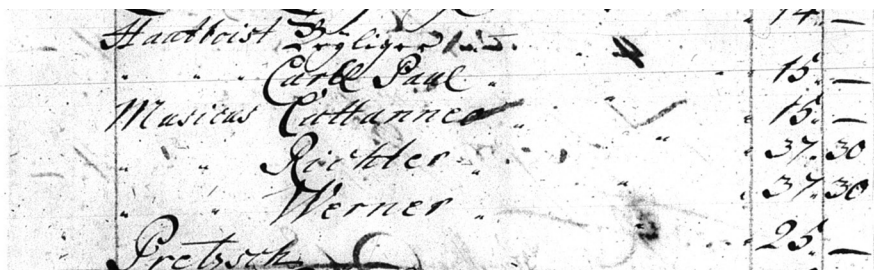 Hautboist
" " Carll Paul " " " 15. —
Musicus Cattanneo " " " 15. —
" " Richter " " " 37. 30
" " Werner " " " 37. 30
Pretzsch " 25. —